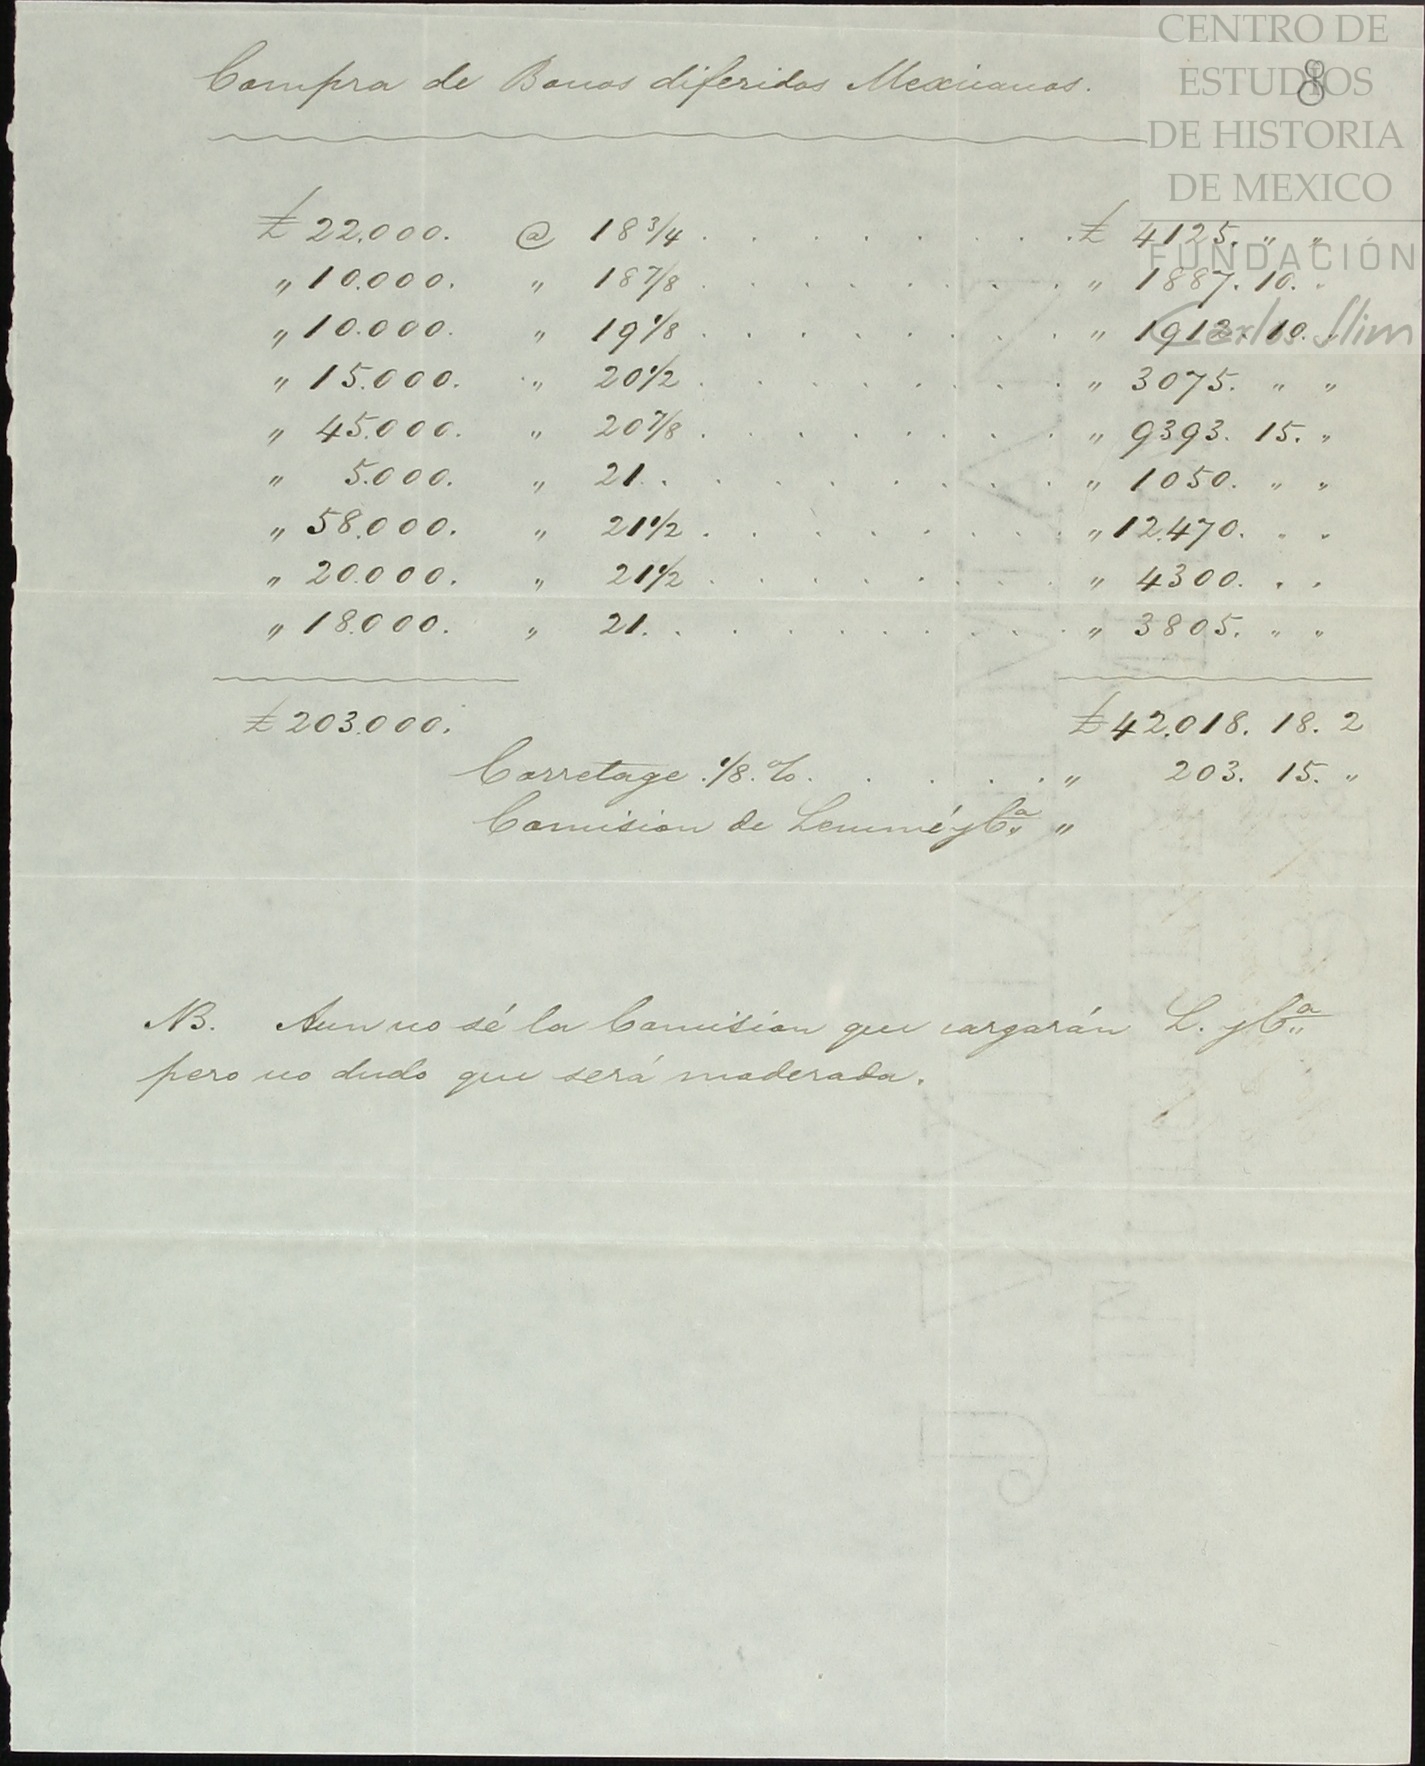 Compra de Bonos diferidos Mexicanos.
8
CENTRO DE
ESTUDIOS
DE HISTORIA
DE MEXICO
FUNDACIÓN
Carlos Slim
£ 22.000. @ 18 3/4 . . . . . . . . £ 4125. " "
" 10.000. " 18 7/8 . . . . . . . . " 1887. 10. "
" 10.000. " 19 1/8 . . . . . . . . " 1912. 10. "
" 15.000. " 20 1/2 . . . . . . . . " 3075. " "
" 45.000. " 20 7/8 . . . . . . . . " 9393. 15. "
" 5.000. " 21. . . . . . . . . " 1050. " "
" 58.000. " 21 1/2 . . . . . . . . " 12.470. " "
" 20.000. " 21 1/2 . . . . . . . . " 4300. " "
" 18.000. " 21. . . . . . . . . " 3805. " "
£ 203.000. £ 42.018. 18. 2
Corretage 1/8 % . . . . . " 203. 15. "
Comision de Lemmé y Cª "
NB. Aun no sé la Comision que cargarán L. y Cª
pero no dudo que será moderada.